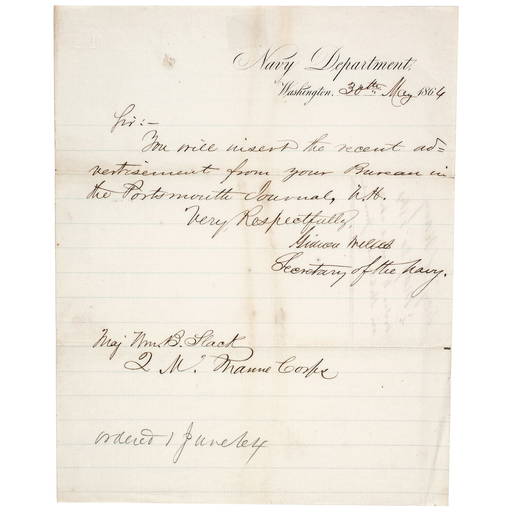 Navy Department,
Washington, 30th May 1864
Sir:-
You will insert the recent ad=
vertisement from your Bureau in
the Portsmouth Journal, N.H.
Very Respectfully,
Gideon Welles
Secretary of the Navy.
Maj Wm. B. Slack
Q Mr Marine Corps
ordered 1 June 64